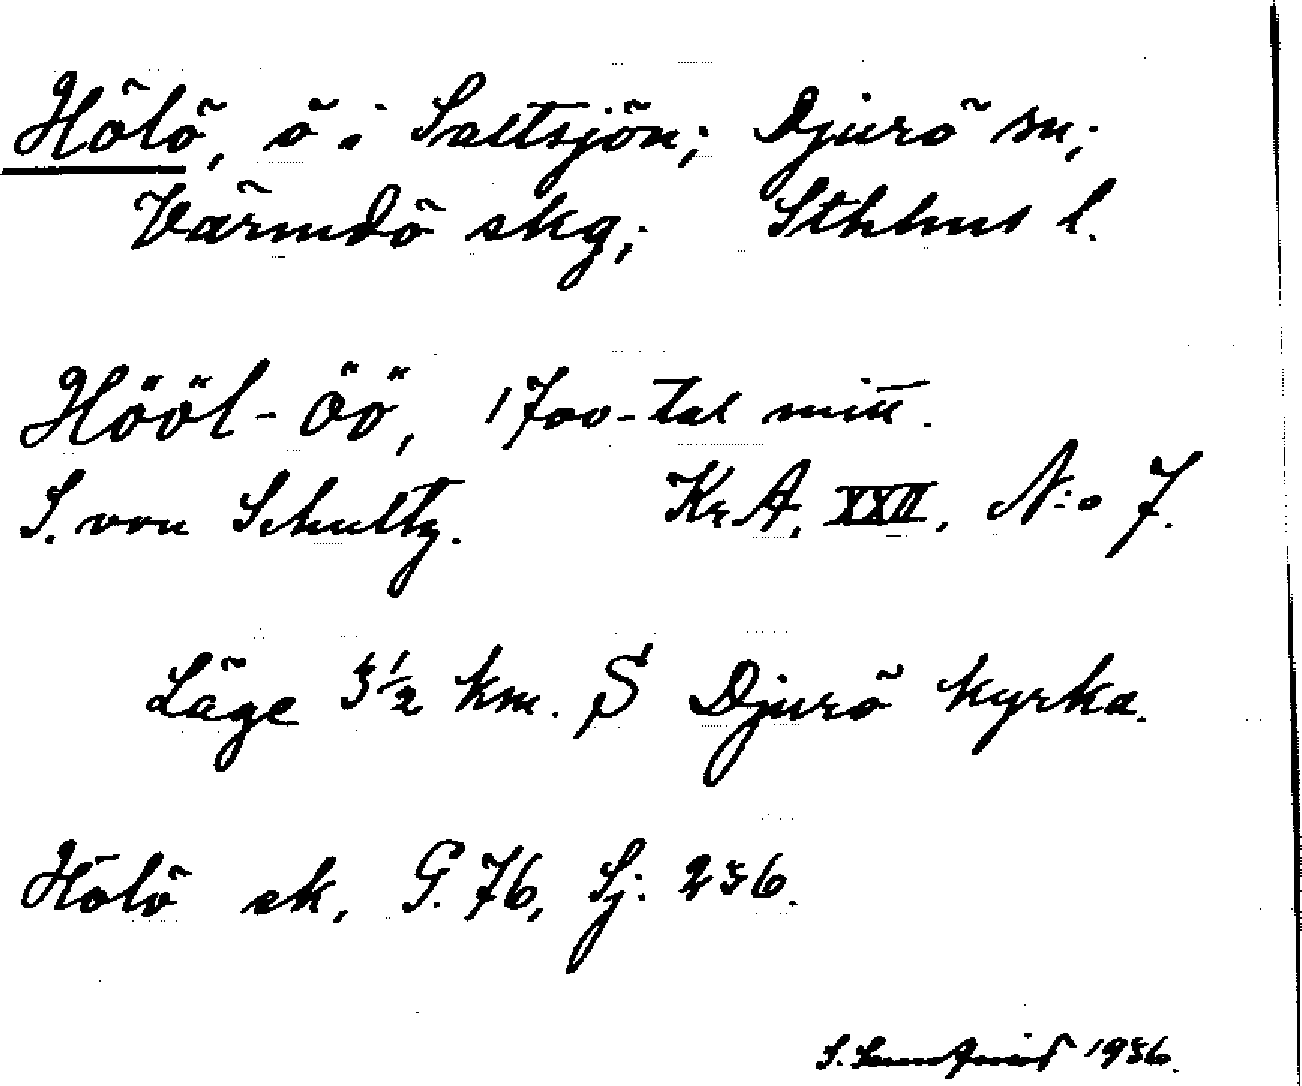 Hölö, ö i Saltsjön; Djurö sn;
Värmdö skg; Sthlms l.
Hööl-öö, 1700-tal mitt.
S. von Schultz. Kr.A. XXII, N:o 7.
Läge 5½ km. S Djurö kyrka.
Hölö sk. G. 76, Sj. 236.
S. 1936.